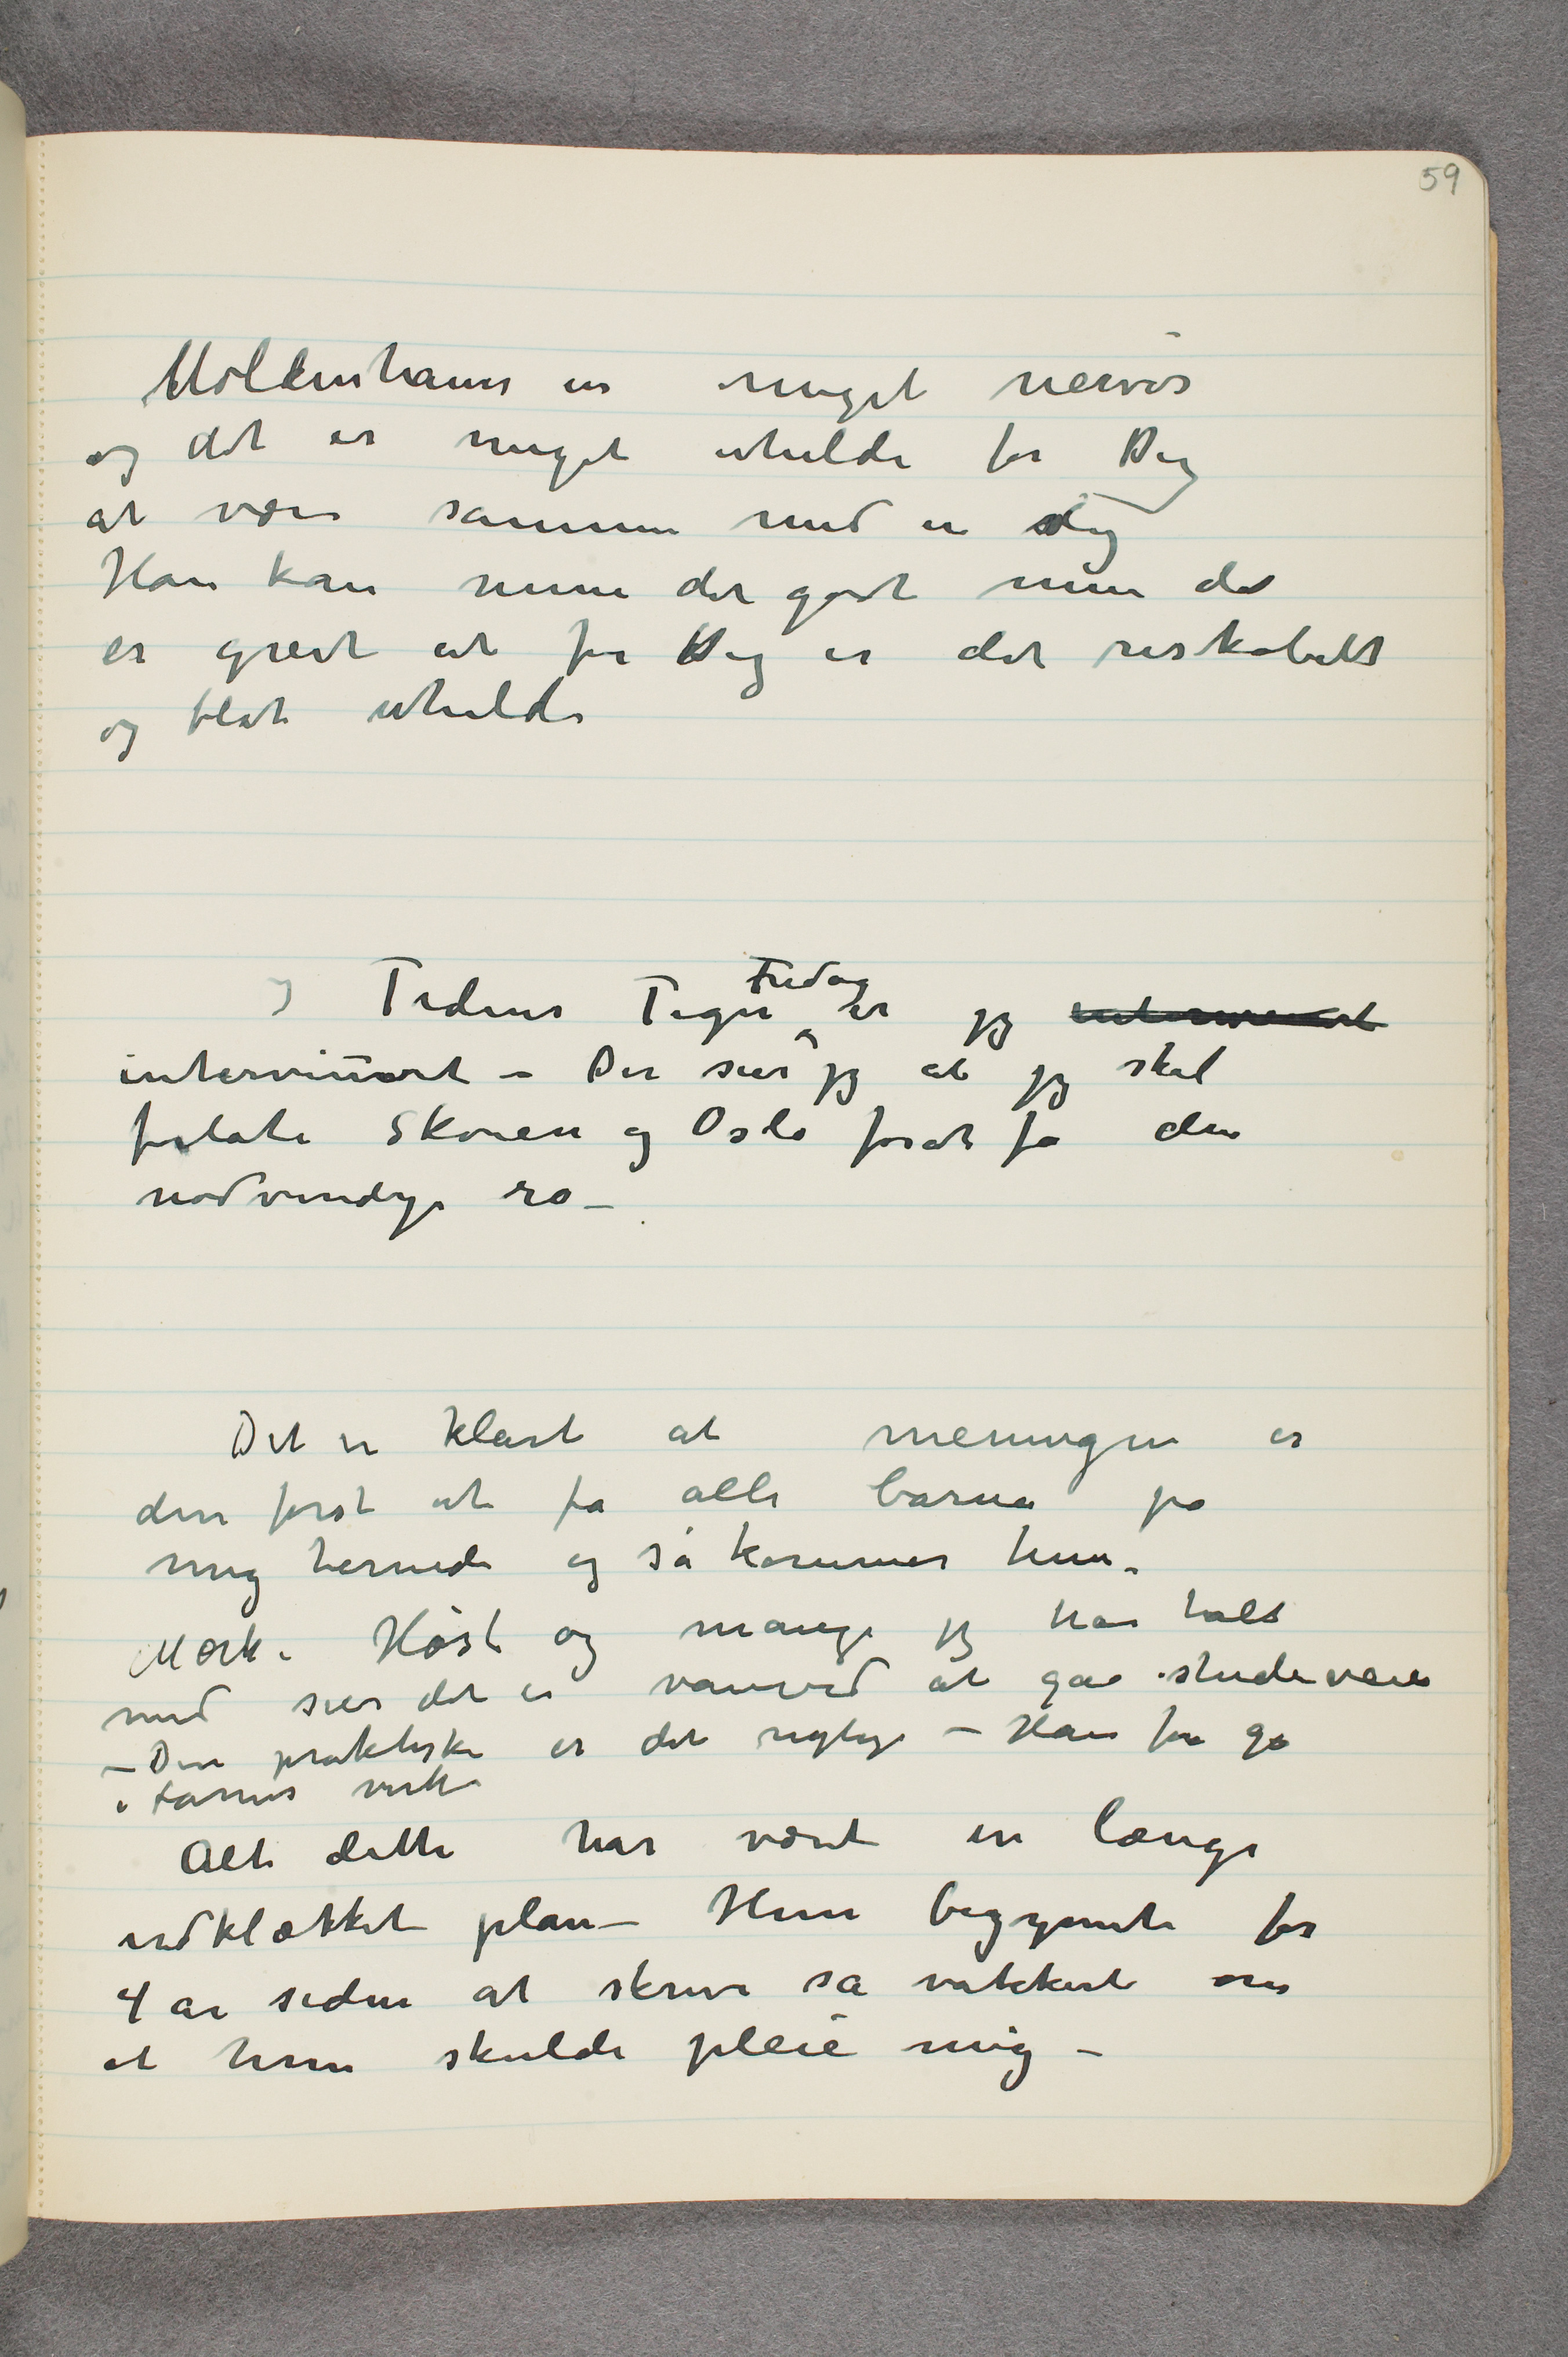 59
Moldenhauer er meget nervøs
og det er meget uheldi for Dig
at være sammen med en slig
Han kan mene det godt men det
er greit at for Dig er det riskabelt
og blot uheldi
I Tidens Tegn Fredag er jeg
interviuvet – Der sier jeg at jeg skal
forlate Skøien og Oslo forat få den
nødvendige ro –
Det er klart at meningen er
den først at få alle barna på
mig hernede og så kommer hun.
Mørk. Høst og mange jeg har talt
med sier det er vanvid at gåe studeveien
– Den praktiske er det rigtige – Han får gå
i farens verk
Alt dette har været en længe
udklækket plan – Hun begynte for
4 år siden at skrive så vakkert om
at hun skulde pleie mig –